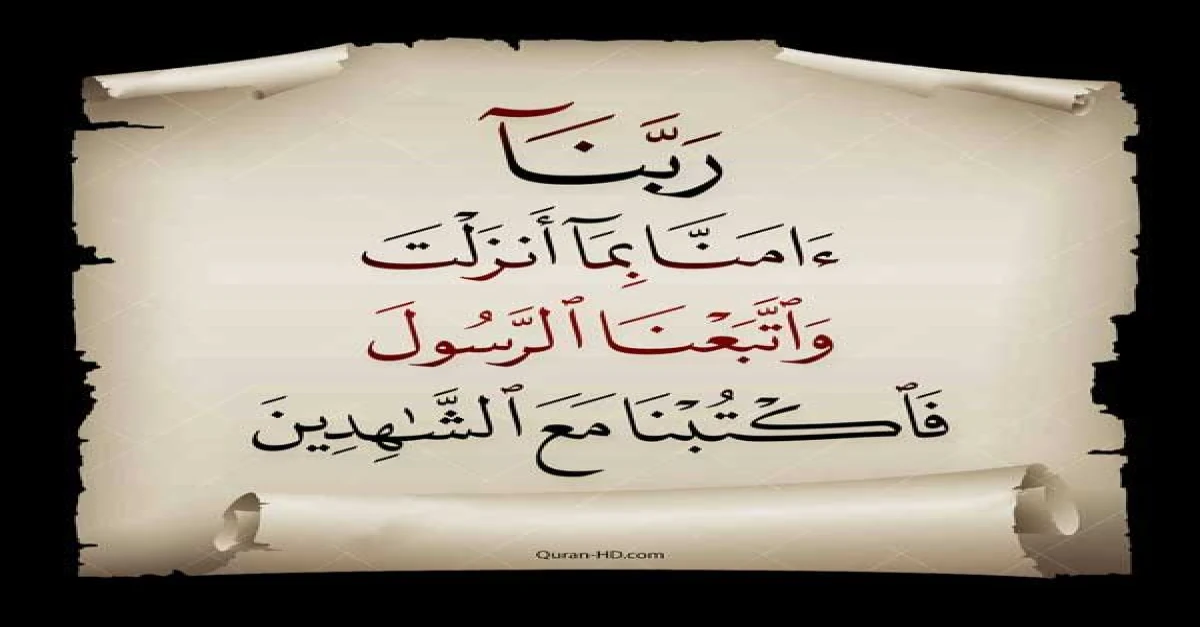 رَبَّنَآ
ءَامَنَّا بِمَآ أَنزَلْتَ
وَٱتَّبَعْنَا ٱلرَّسُولَ
فَٱكْتُبْنَا مَعَ ٱلشَّـٰهِدِينَ
Quran-HD.com